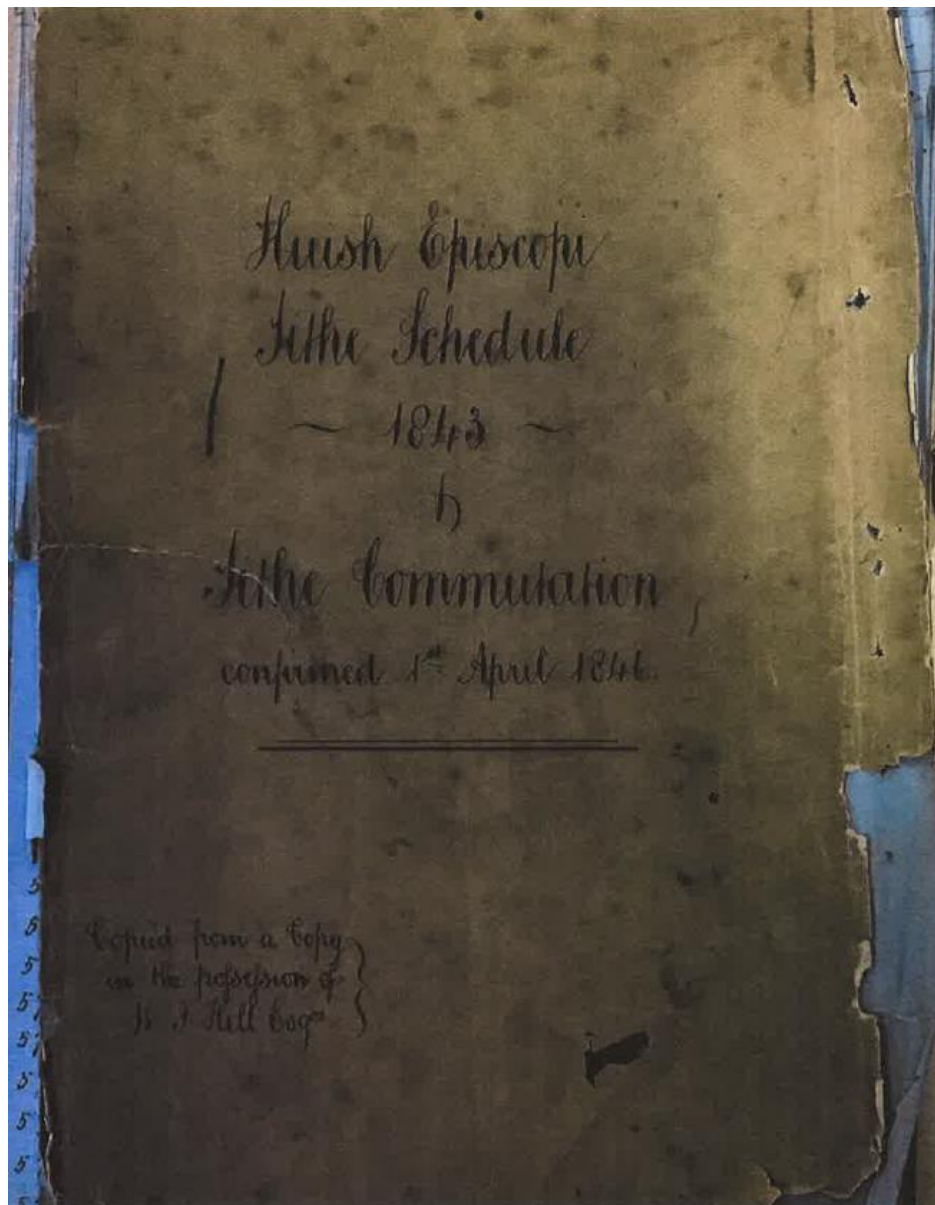 Huish Episcopi
Tithe Schedule
~ 1843 ~
Tithe Commutation
confirmed 1st April 1846.
Copied from a Copy
in the possession of
Hill Esqre
5
5
5
5
5
5
5
5